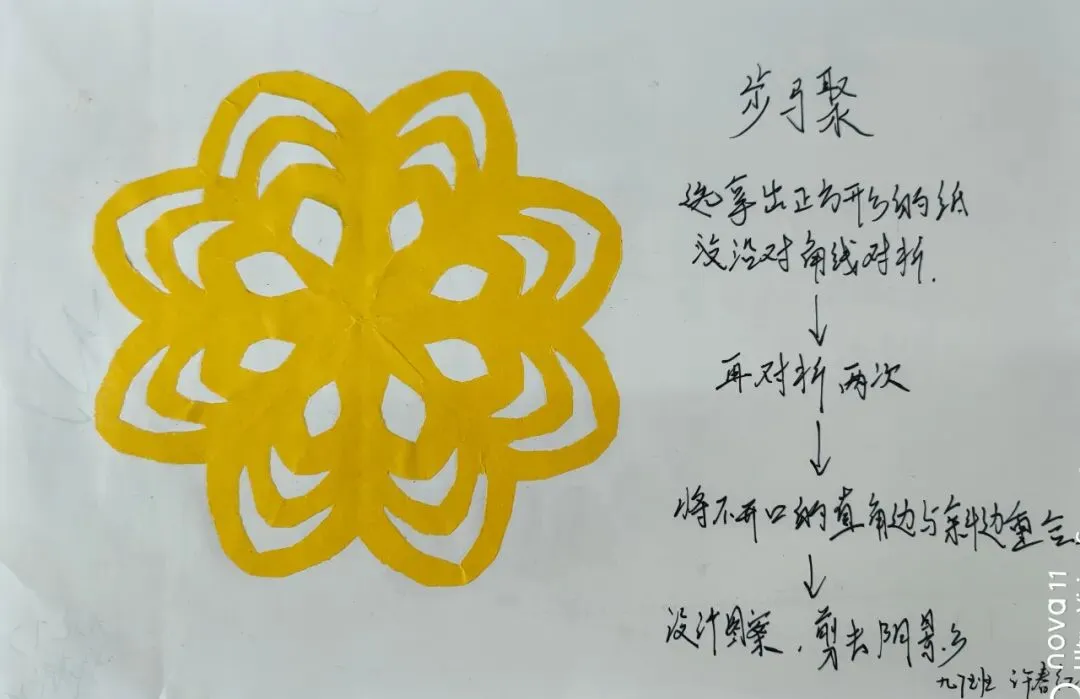 步马聚
先拿出正方形的纸
没沿对角线对折.
再对折两次
将不开口的直角边与斜边重合
设计图案,剪去阴影
九 班 许春红
nova 11